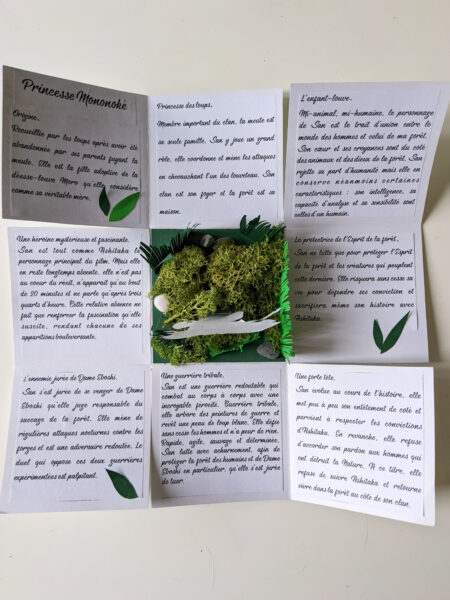 Princesse Mononoké
Origine.
Recueillie par les loups après avoir été
abandonnée par ses parents fuyant la
meute. Elle est la fille adoptive de la
déesse-louve, Moro qu'elle considère
comme sa véritable mère.
Princesse des loups.
Membre important du clan, la meute est
sa seule famille. San y joue un grand
rôle, elle coordonne et mène les attaques
en chevauchant l'un des louveteaux. Son
clan est son foyer et la forêt est sa
maison.
L'enfant-louve.
Mi-animal, mi-humaine, le personnage
de San est le trait d'union entre le
monde des hommes et celui de ma forêt.
Son cœur et ses croyances sont du côté
des animaux et des dieux de la forêt. San
rejette sa part d'humanité mais elle en
conserve néanmoins certaines
caractéristiques : son intelligence, sa
capacité d'analyse et sa sensibilité sont
celles d'un humain.
Une héroïne mystérieuse et fascinante.
San est tout comme Ashitaka le
personnage principal du film. Mais elle
en reste longtemps absente, elle n'est pas
au coeur du récit, n'apparaît qu'au bout
de 20 minutes et ne parle qu'après trois
quarts d'heure. Cette relative absence ne
fait que renforcer la fascination qu'elle
suscite, rendant chacune de ses
apparitions bouleversante.
La protectrice de l'Esprit de la forêt.
San ne lutte que pour protéger l'Esprit
de la forêt et les créatures qui peuplent
cette dernière. Elle risquera sans cesse sa
vie pour défendre ses conviction et
sacrifiera même son histoire avec
Ashitaka.
L'ennemie jurée de Dame Eboshi.
San n'aspire qu'à se venger de Dame
Eboshi qu'elle juge responsable du
saccage de la forêt. Elle mène de
régulières attaques nocturnes contre les
forges et est une adversaire redoutée. Le
duel qui oppose ces deux guerrières
expérimentées est palpitant.
Une guerrière tribale.
San est une guerrière redoutable qui
combat au corps à corps avec une
incroyable férocité. Guerrière tribale,
elle arbore des peintures de guerre et
revêt une peau de loup blanc. Elle défie
sans cesse les hommes et n'a peur de rien.
Rapide, agile, sauvage et déterminée,
San lutte avec acharnement, afin de
protéger la forêt des humains et de Dame
Eboshi en particulier, qu'elle s'est jurée
de tuer.
Une forte tête.
San évolue au cours de l'histoire, elle
met peu à peu son entêtement de côté et
parvient à respecter les convictions
d'Ashitaka. En revanche, elle refuse
d'accorder son pardon aux hommes qui
ont détruit la Nature. A ce titre, elle
refuse de suivre Ashitaka et retourne
vivre dans la forêt au côté de son clan.